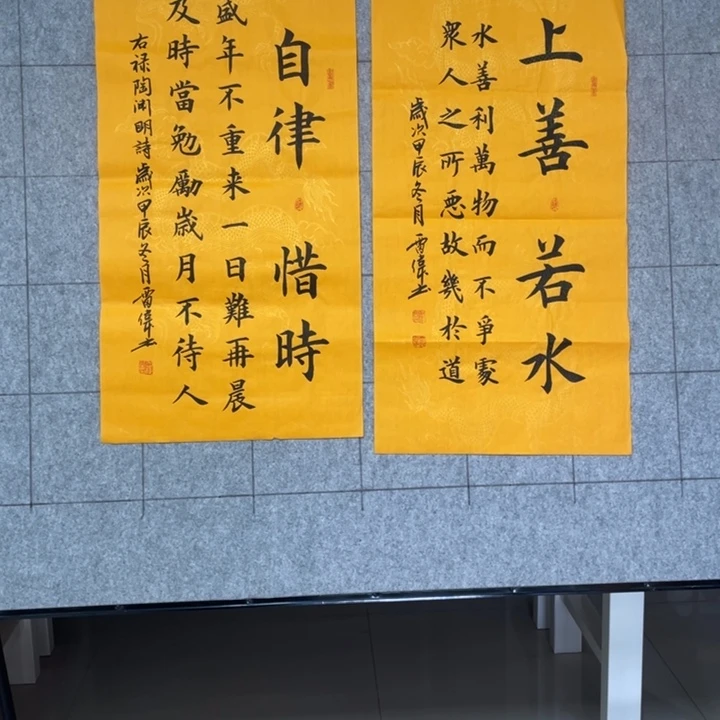 上善若水
水善利萬物而不爭處
衆人之所惡故幾於道
歲次甲辰冬月 雷偉书
自律惜時
盛年不重来一日難再晨
及時當勉勵歲月不待人
右禄陶渊明詩歲次甲辰冬月雷偉书